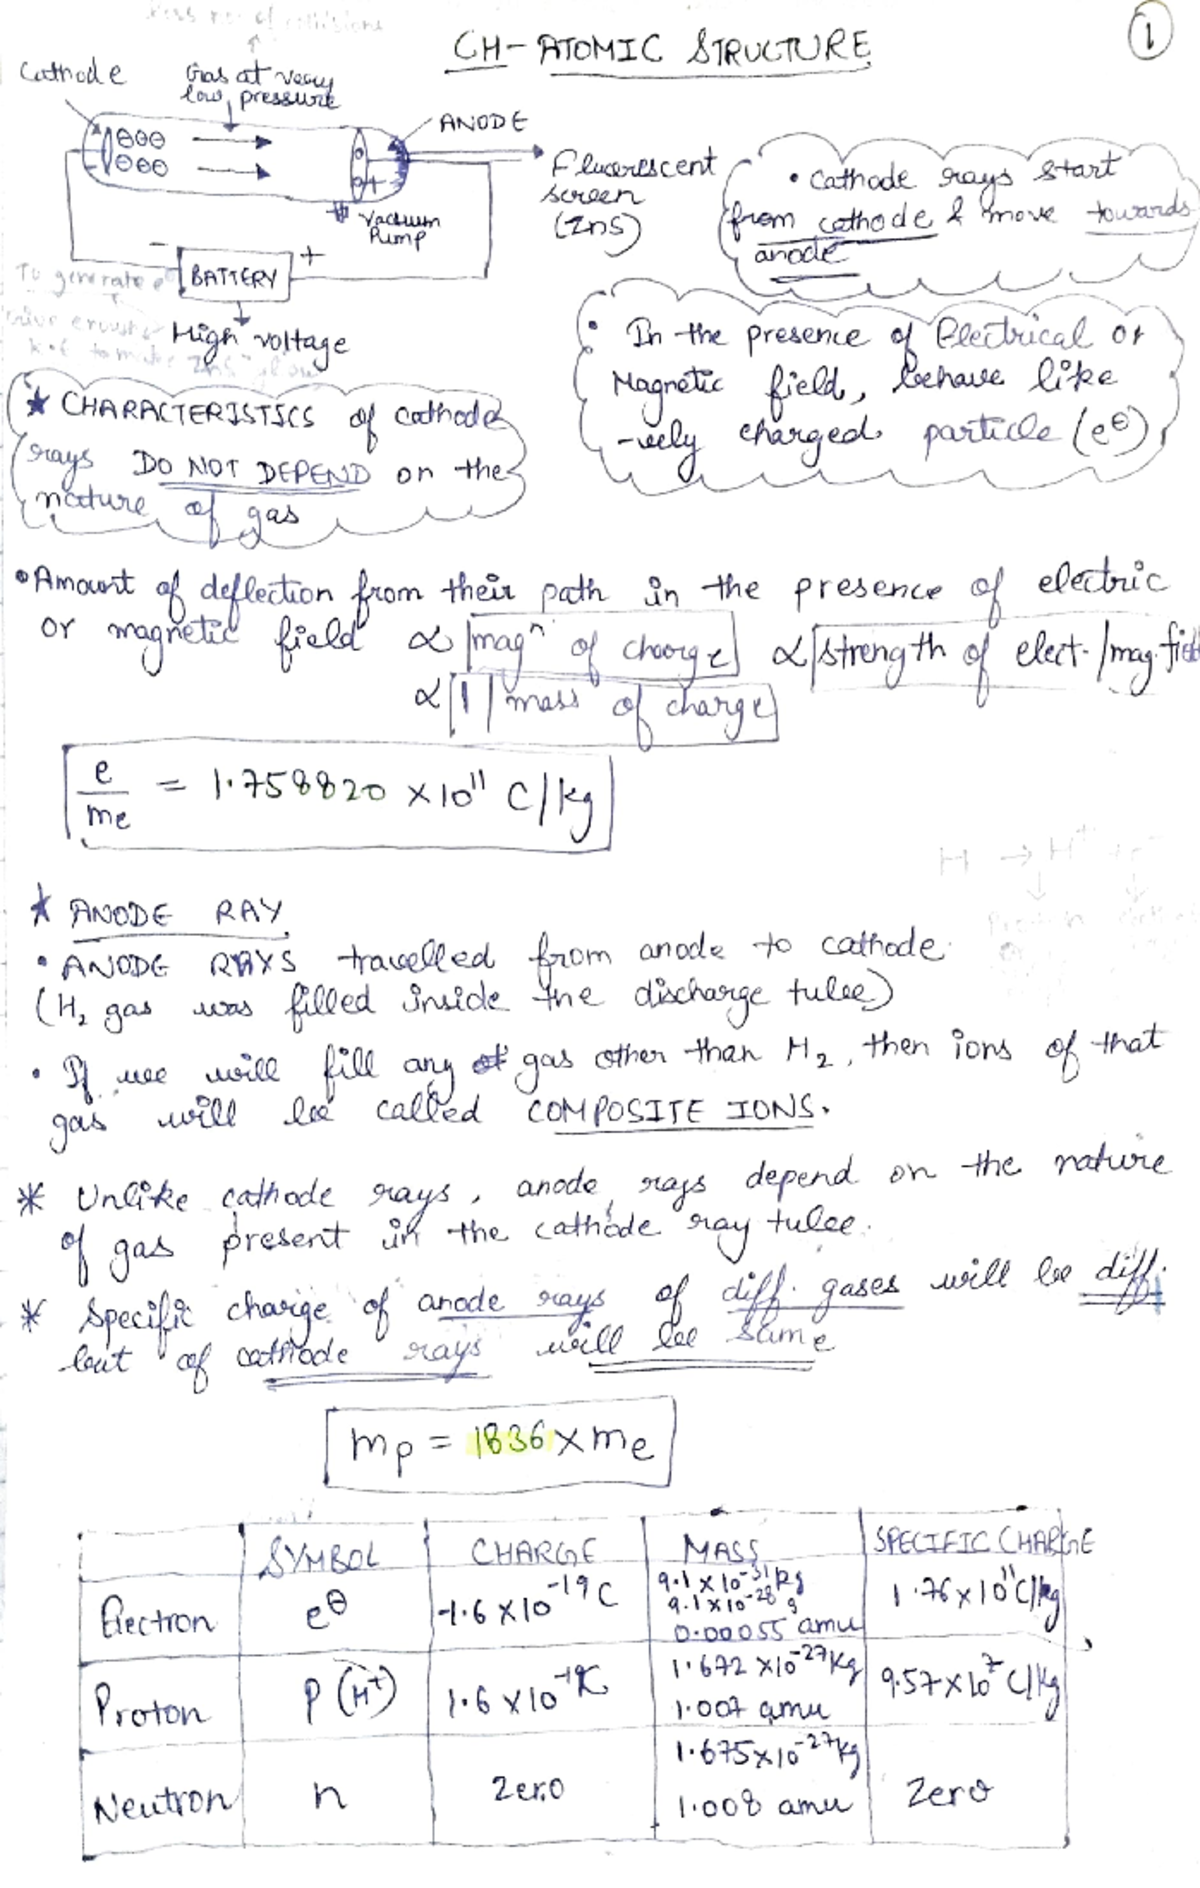 CH- ATOMIC STRUCTURE
1
Cathode
Gas at very
low pressure
ANODE
Fluorescent
screen
(ZnS)
Vacuum
Pump
- BATTERY +
To generate e
High voltage
• Cathode rays start
from cathode & move towards
anode
• In the presence of Electrical or
Magnetic field, behave like
-vely charged particle (e⊖)
★ CHARACTERISTICS of cathode
rays DO NOT DEPEND on the
nature of gas
• Amount of deflection from their path in the presence of electric
or magnetic field ∝ magⁿ of charge ∝ strength of elect./mag. field
∝ 1/mass of charge
e/me = 1.758820 × 10¹¹ C/kg
H → H⁺ +
★ ANODE RAY
• ANODE RAYS travelled from anode to cathode
(H₂ gas was filled inside the discharge tube)
• If we will fill any gas other than H₂, then ions of that
gas will be called COMPOSITE IONS.
* Unlike cathode rays, anode rays depend on the nature
of gas present in the cathode ray tube.
* Specific charge of anode rays of diff. gases will be diff.
but of cathode rays will be same
mp = 1836 × me
SYMBOL CHARGE MASS SPECIFIC CHARGE
Electron e⊖ -1.6 × 10⁻¹⁹ C 9.1 × 10⁻³¹ kg 1.76 × 10¹¹ C/kg
9.1 × 10⁻²⁸ g
0.00055 amu
Proton P (H⁺) 1.6 × 10⁻¹⁹C 1.672 × 10⁻²⁷ Kg 9.57 × 10⁷ C/Kg
1.007 amu
Neutron n Zero 1.675 × 10⁻²⁷ Kg Zero
1.008 amu